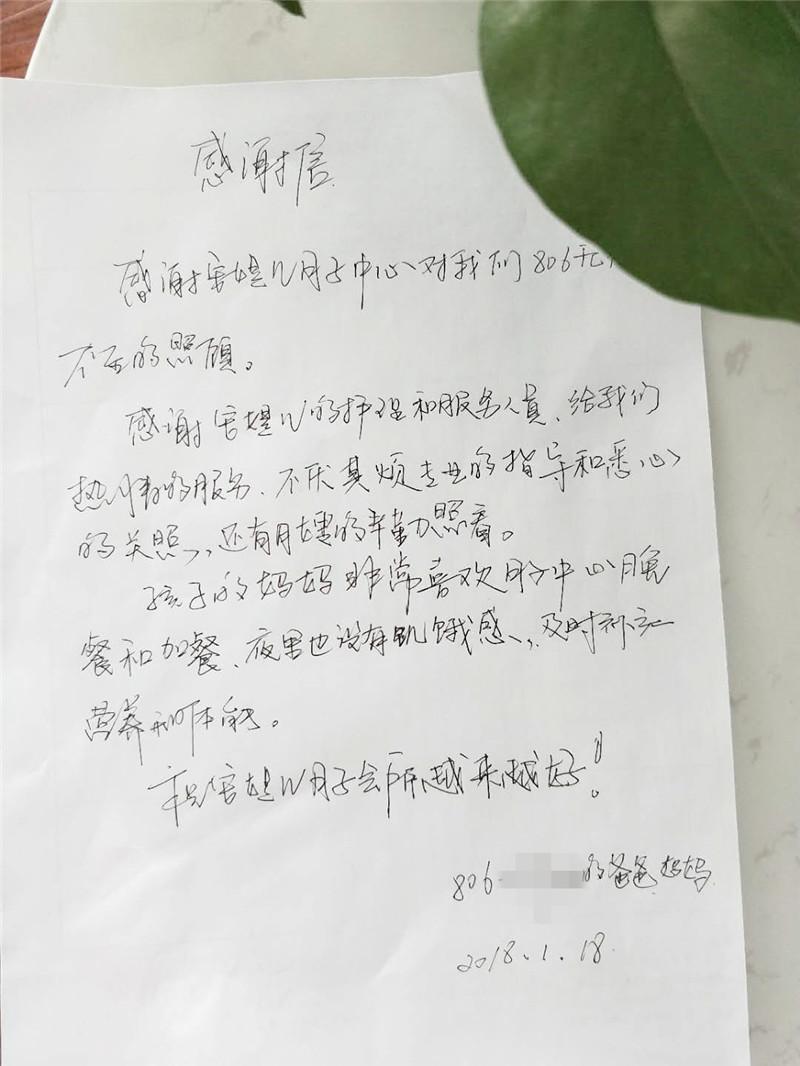 感谢信
感谢馨媞儿月子中心对我们806无
不至的照顾。
感谢馨媞儿的护理和服务人员、给我们
热情的服务、不厌其烦专业的指导和悉心
的关照，还有月嫂的辛勤照看。
孩子的妈妈非常喜欢月子中心晚
餐和加餐、夜里也没有饥饿感，及时补充
营养和体能。
祝馨媞儿月子会所越来越好！
806 的爸爸妈妈
2018.1.18